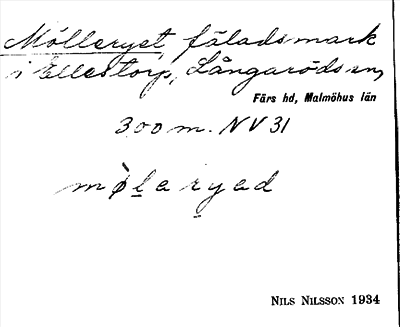 Mölleryet, fäladsmark
i Ellestorp, Långaröds sn,
Färs hd, Malmöhus län
300 m. NV 31
NILS NILSSON 1934